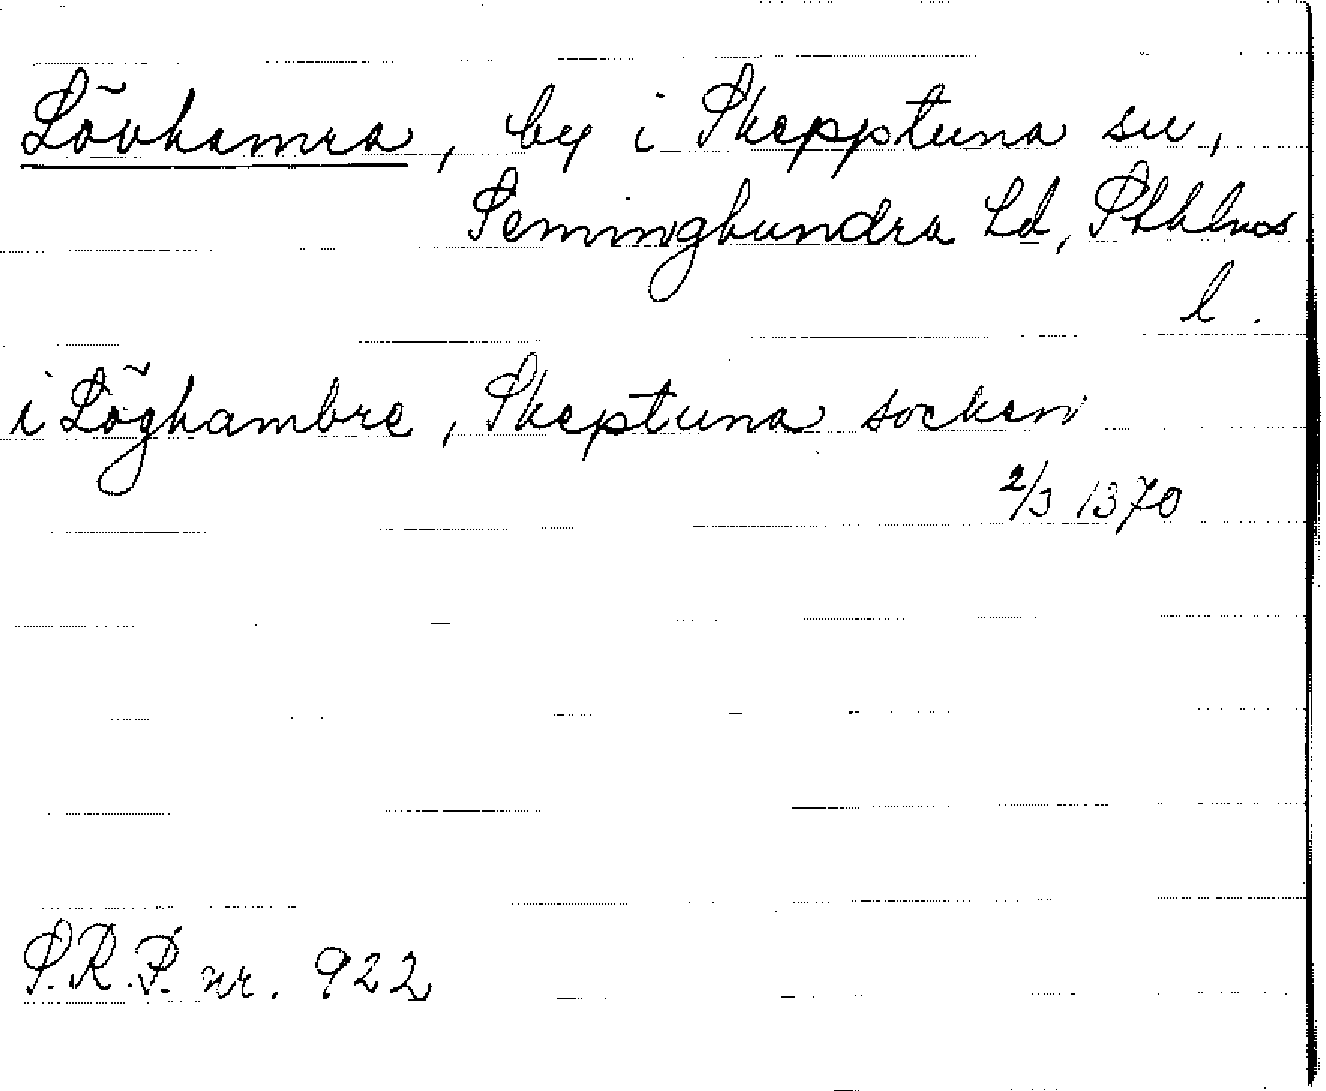 Lövhamra, by i Skepptuna sn,
Seminghundra hd, Sthlms
l.
i Löghambre, Skeptuna socken
2/3 1370
S.R.P. nr. 922